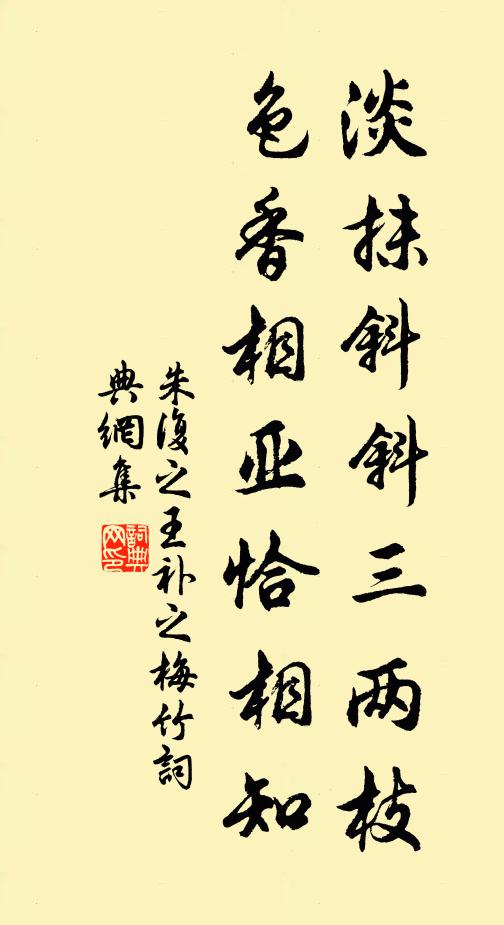 淡抹斜斜三两枝
色香相亚恰相知
朱復之王补之梅竹詞
典網集
詞典
网印